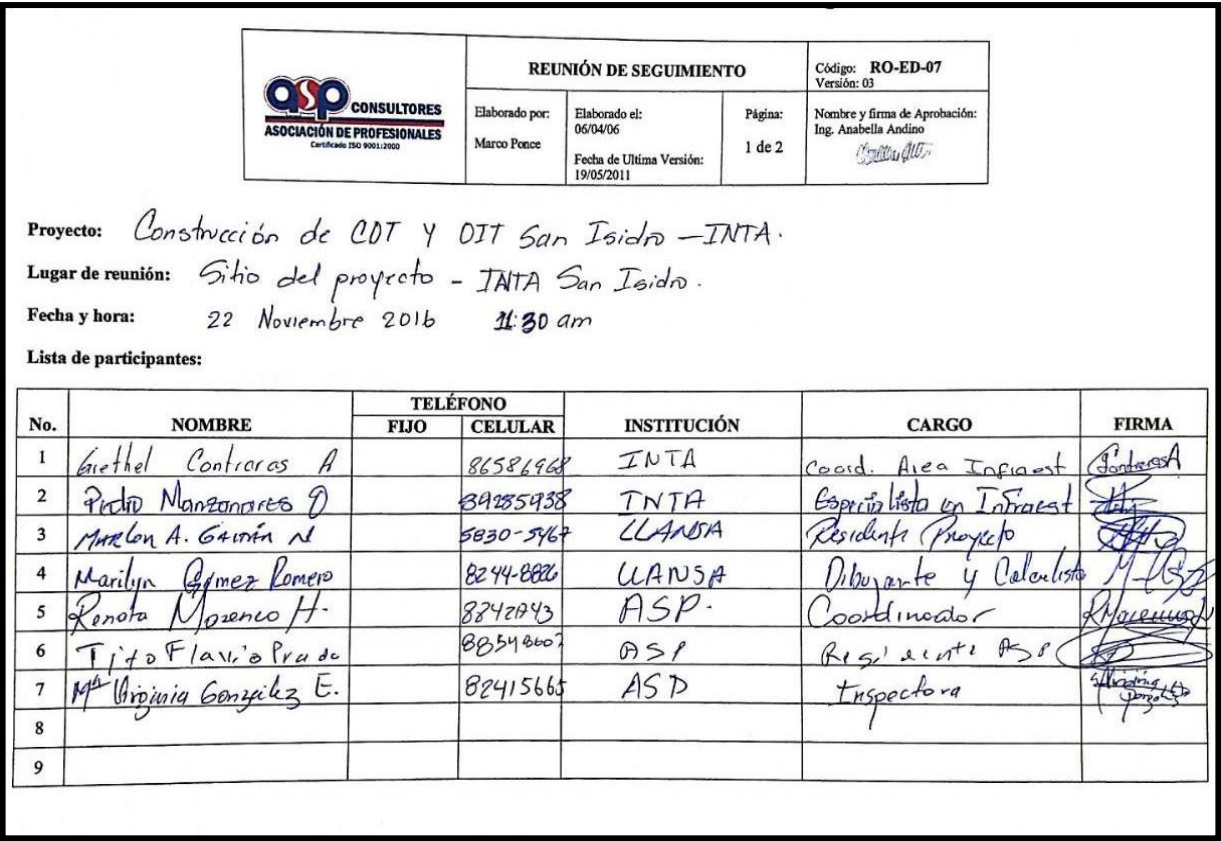 asp CONSULTORES
ASOCIACIÓN DE PROFESIONALES
Certificado ISO 9001:2000
REUNIÓN DE SEGUIMIENTO
Código: RO-ED-07
Versión: 03
Elaborado por:
Marco Ponce
Elaborado el:
06/04/06
Fecha de Ultima Versión:
19/05/2011
Página:
1 de 2
Nombre y firma de Aprobación:
Ing. Anabella Andino
Proyecto: Construcción de CDT Y OIT San Isidro - INTA.
Lugar de reunión: Sitio del proyecto - INTA San Isidro.
Fecha y hora: 22 Noviembre 2016 11:30 am
Lista de participantes:
No. NOMBRE TELÉFONO INSTITUCIÓN CARGO FIRMA
FIJO CELULAR
1 Giethel Contreras A 86586968 INTA Coord. Area Infraest
2 Pedro Manzanares O 89285938 INTA Especialista en Infraest
3 Marlon A. Gaitán N 5830-5467 LLANSA Residente Proyecto
4 Marilyn Gómez Romero 8244-8826 LLANSA Dibujante y Calculista
5 Renata H. ASP. Coordinador
6 Tito Flavio Prado 88548607 ASP Residente ASP
7 Mª Virginia González E. 82415665 ASP Inspectora
8
9